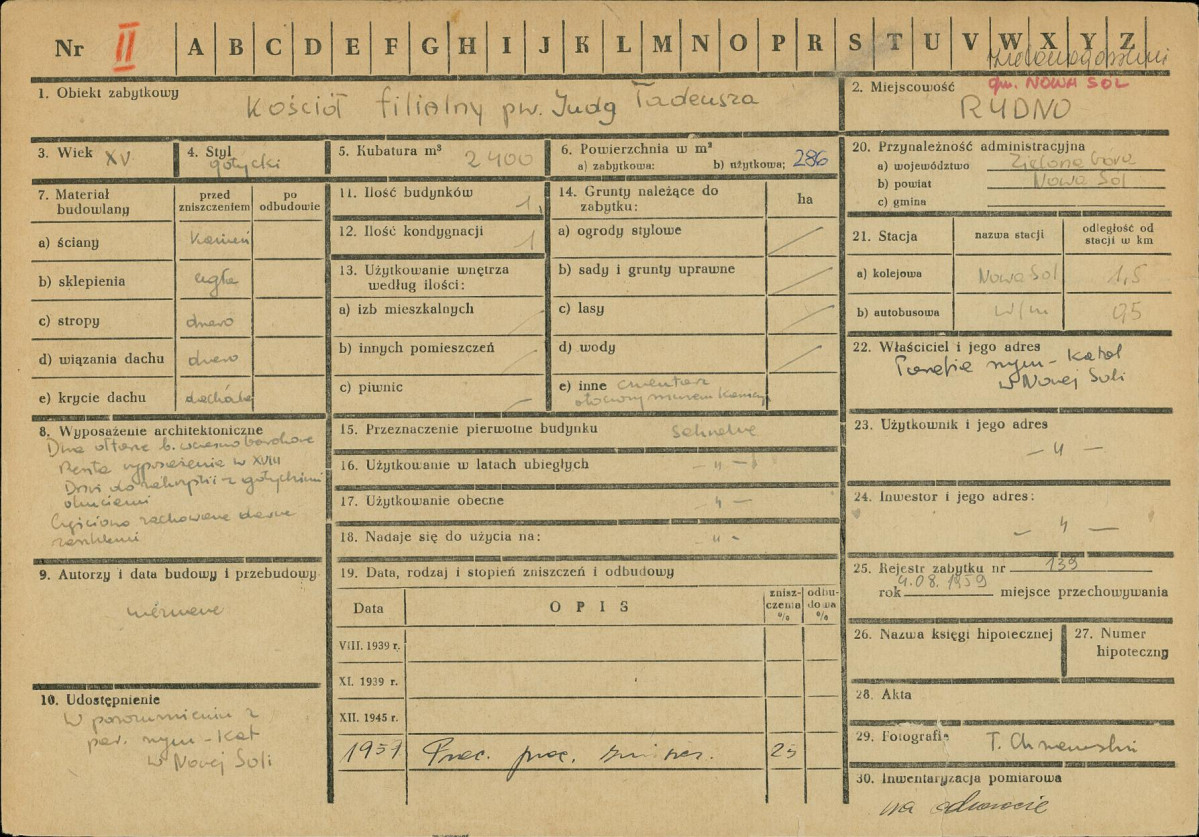 Nr II A B C D E F G H I J K L M N O P R S T U V W X Y Z
1. Obiekt zabytkowy Kościół filialny pw. Judy Tadeusza
2. Miejscowość gm. NOWA SOL
RYDNO
3. Wiek XV
4. Styl gotycki
5. Kubatura m³ 2400
6. Powierzchnia w m²
a) zabytkowa: b) użytkowa: 286
7. Materiał budowlany
przed zniszczeniem
po odbudowie
a) ściany kamień
b) sklepienia cegła
c) stropy drewno
d) wiązania dachu drewno
e) krycie dachu dachówka
8. Wyposażenie architektoniczne
Dwa ołtarze b. wczesnobarokowe
Reszta wyposażenia w XVIII
Drzwi do zakrystii z gotyckimi
okuciami
Częściowo zachowane dawne
9. Autorzy i data budowy i przebudowy
nieznane
10. Udostępnienie
W porozumieniu z
par. rzym-kat
w Nowej Soli
11. Ilość budynków 1
12. Ilość kondygnacji 1
13. Użytkowanie wnętrza
według ilości:
a) izb mieszkalnych —
b) innych pomieszczeń —
c) piwnic —
14. Grunty należące do
zabytku:
ha
a) ogrody stylowe —
b) sady i grunty uprawne —
c) lasy —
d) wody —
e) inne cmentarz
otoczony murem kamien.
15. Przeznaczenie pierwotne budynku sakralne
16. Użytkowanie w latach ubiegłych — „ —
17. Użytkowanie obecne „ —
18. Nadaje się do użycia na: „ -
19. Data, rodzaj i stopień zniszczeń i odbudowy
Data
OPIS
zniszczenia %
odbudowa %
VIII. 1939 r.
XI. 1939 r.
XII. 1945 r.
20. Przynależność administracyjna
a) województwo Zielona Góra
b) powiat Nowa Sol
c) gmina
21. Stacja
nazwa stacji
odległość od
stacji w km
a) kolejowa Nowa Sol 1,5
b) autobusowa w/m 0,5
22. Właściciel i jego adres
Parafia rzym-katol
w Nowej Soli
23. Użytkownik i jego adres
— „ —
24. Inwestor i jego adres:
— „ —
25. Rejestr zabytku nr 139
rok 4.08.1959 miejsce przechowywania
26. Nazwa księgi hipotecznej
27. Numer
hipoteczny
28. Akta
29. Fotografie
30. Inwentaryzacja pomiarowa
na odwrocie